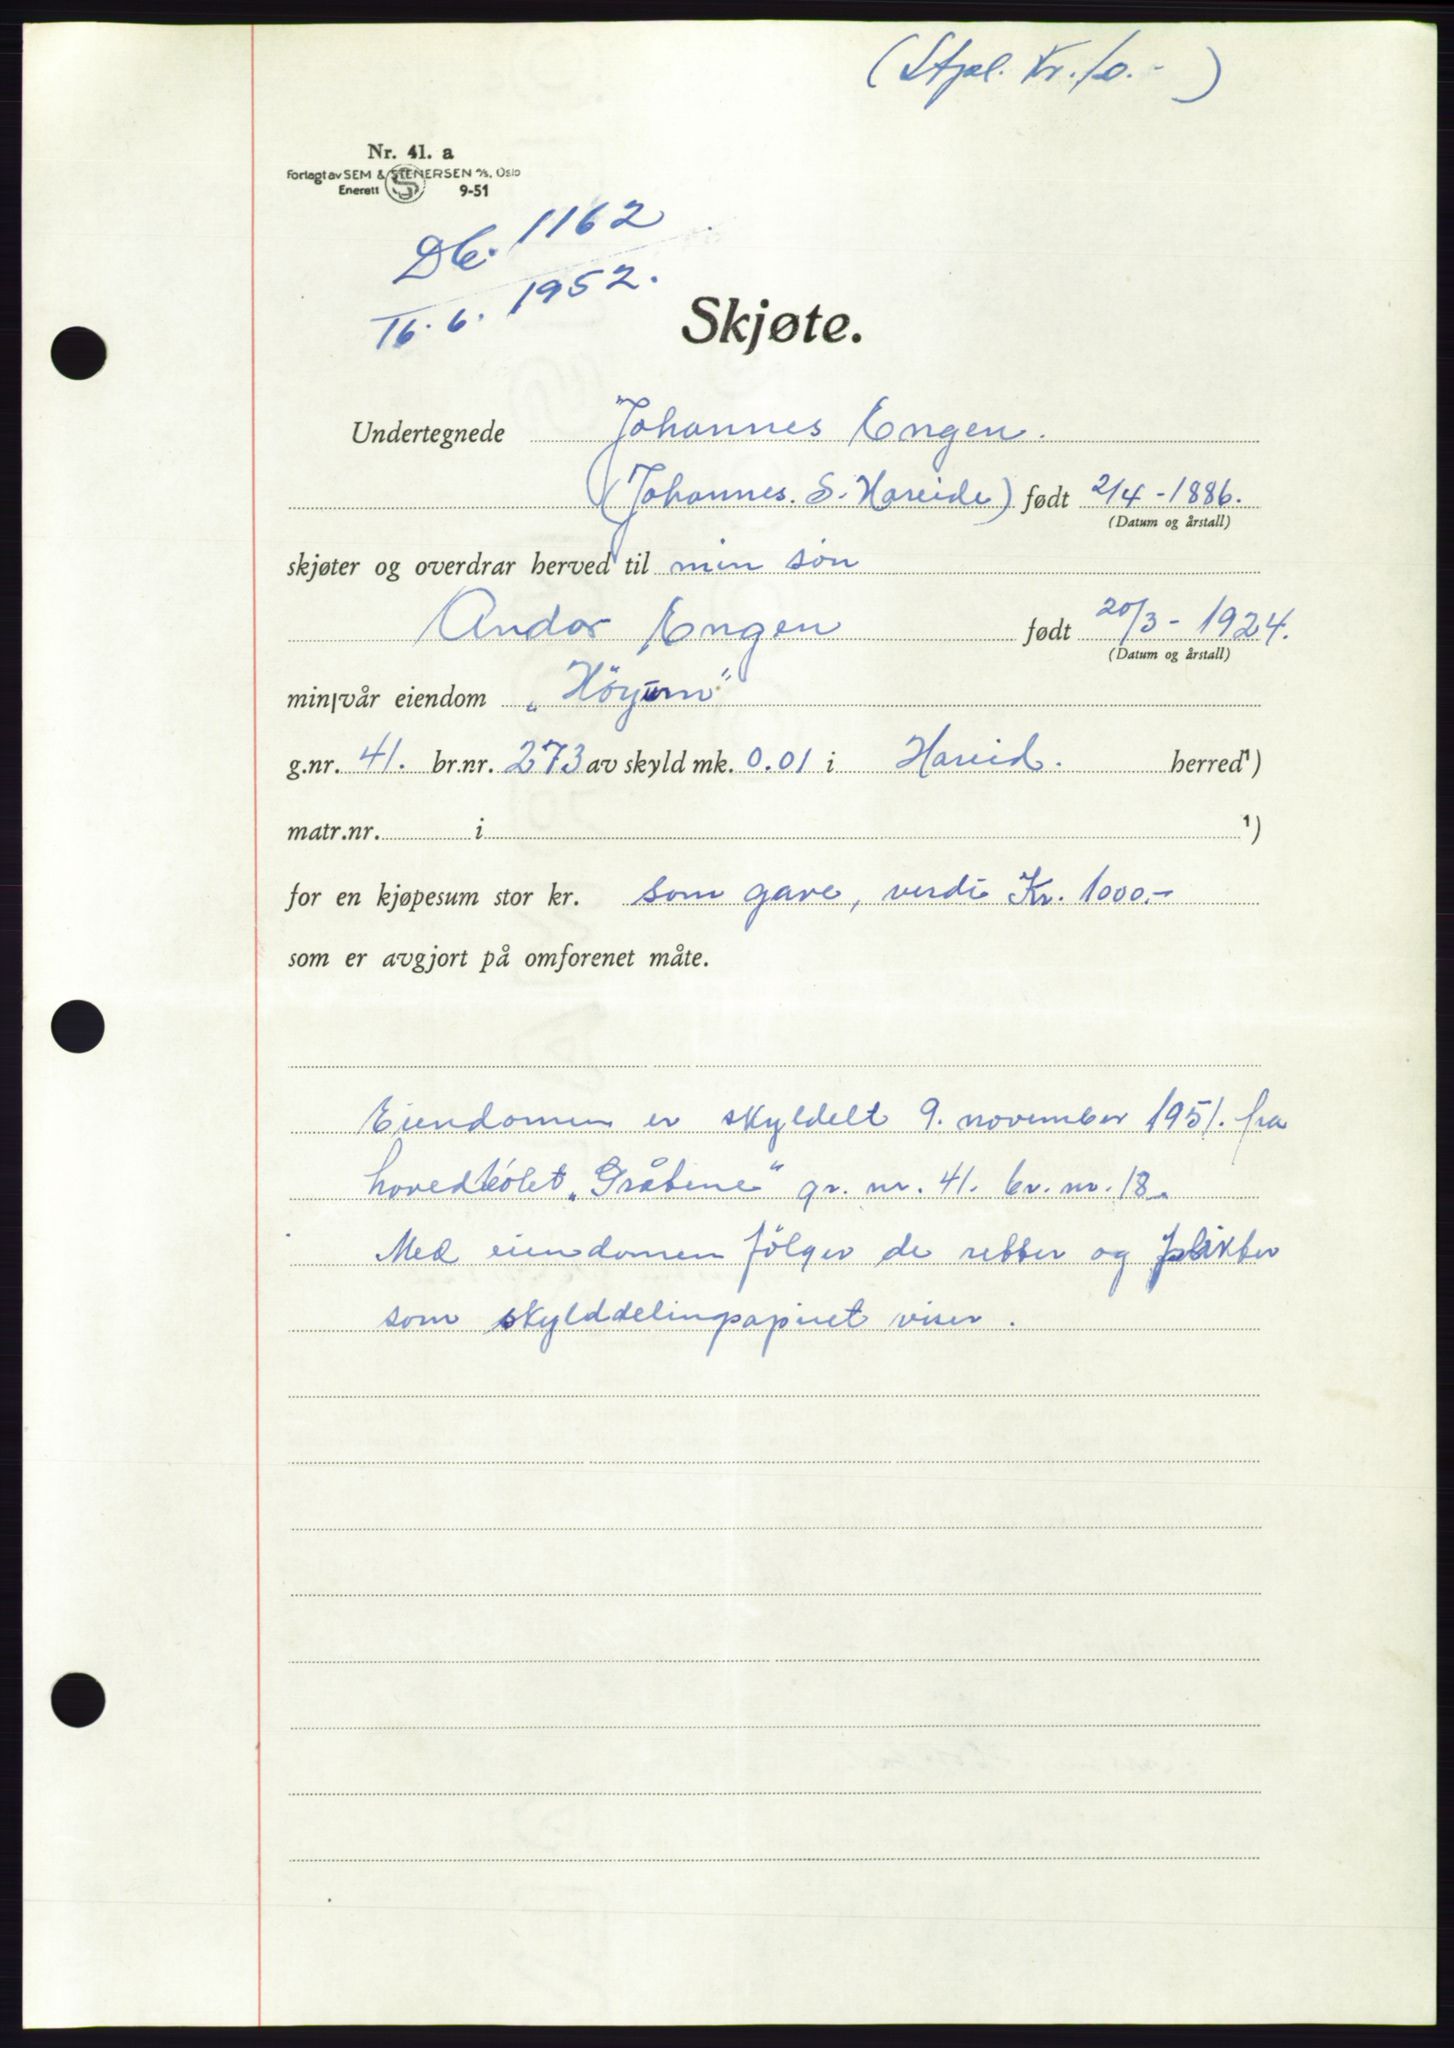 (Stpl. Kr. 10.-)
Nr. 41. a
Forlagt av SEM & STENERSEN A/S, Oslo
Enerett 9-51
Db. 1162
16.6. 1952.
Skjøte.
Undertegnede Johannes Engen.
(Johannes. S. Hareide) født 2/4 - 1886.
(Datum og årstall)
skjøter og overdrar herved til min sön
Andor Engen født 20/3 - 1924.
(Datum og årstall)
min/vår eiendom „Höyum"
g.nr. 41. br.nr. 273 av skyld mk. 0.01 i Hareid. herred¹)
matr.nr. i ¹)
for en kjøpesum stor kr. som gave, verdi Kr. 1000.-
som er avgjort på omforenet måte.
Eiendomen er skyldelt 9. november 1951. fra
hovedbölet „Gråbene" gr. nr. 41. br. nr. 18.
Med eiendomen fölger de retter og plikter
som skylddelingpapiret viser.